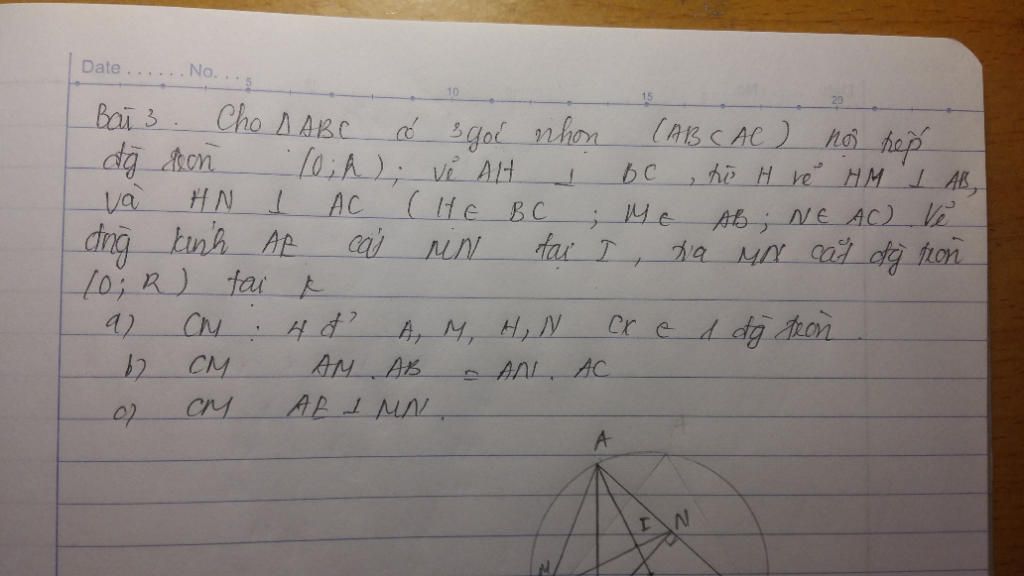 Date ...... No....
5 10 15 20
Bài 3. Cho Δ ABC có 3 góc nhọn (AB < AC) nội tiếp
đg tròn (O; R); vẽ AH ⊥ BC, từ H vẽ HM ⊥ AB,
và HN ⊥ AC (H ∈ BC; M ∈ AB; N ∈ AC). Vẽ
đng kính AE cắt MN tại I, tia MN cắt đg tròn
(O; R) tại K
a) CM: 4 đ' A, M, H, N ∈ 1 đg tròn.
b) CM AM. AB = AN. AC
c) CM AE ⊥ MN.
A
I N
M